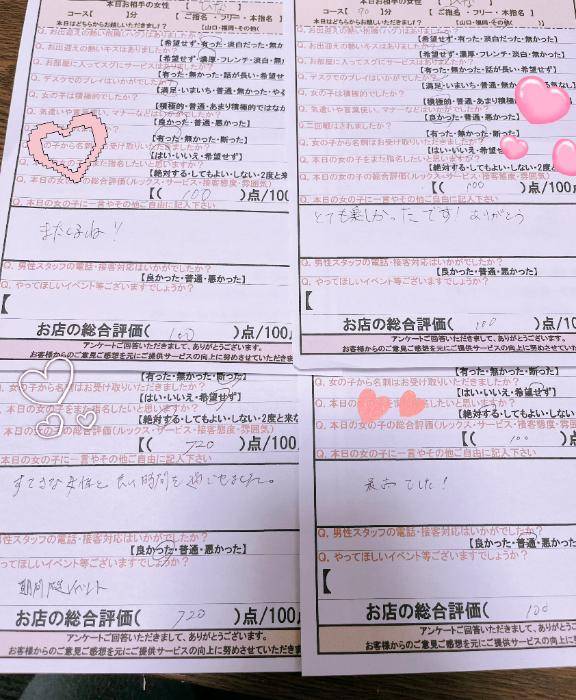 本日お相手の女性
コース【 】分 【 ご指名・フリー・本指名
本日はどちらからお越しいただきましたか?
Q. お部屋に入ってスグにサービスはありましたか?
【希望せず・有った・淡白だった・無か
【希望せず・濃厚・フレンチ・淡白・無
【有った・無かった・話が長い・希望せ
Q. デスクでのプレイはいかがでしたか?
【満足・いまいち・普通・無かった・や
Q. 女の子は積極的でしたか?
【積極的・普通・あまり積極的ではなか
【良かった・普通・悪かった】
【有った・無かった・断った】
【はい・いいえ・希望せず】
【絶対する・してもよい・しない・2度と来
Q. 本日の女の子の総合評価(ルックス・サービス・接客態度・雰囲気)
【( 100 )点/100
Q. 本日の女の子に一言やその他ご自由に記入下さい
またくるね!!
Q. 男性スタッフの電話・接客対応はいかがでしたか?
【良かった・普通・悪かった】
Q. やってほしいイベント等ございますでしょうか?
【
お店の総合評価( 100 )点/100
アンケートご回答いただきまして、ありがとうございます。
お客様からのご意見ご感想を元にご提供サービスの向上に努めさせていただきま
本日お相手の女性
コース【 】分 【 ご指名・フリー・本指名
本日はどちらからお越しいただきましたか?
【希望せず・有った・淡白だった・無か
【希望せず・濃厚・フレンチ・淡白・無
【有った・無かった・話が長い・希望せ
Q. デスクでのプレイはいかがでしたか?
【満足・いまいち・普通・無かった・
Q. 女の子は積極的でしたか?
【積極的・普通・あまり積極
【良かった・普通・悪かった】
Q. 二回戦はされましたか?
【有った・無かった・断った】
Q. 女の子から名刺はお受け取りいただきましたか?
【はい・いいえ・希望せず】
Q. 本日の女の子をまた指名したいと思いますか?
【絶対する・してもよい・しない・2度
Q. 本日の女の子の総合評価(ルックス・サービス・接客態度・雰囲気)
【( 100 )点/100
Q. 本日の女の子に一言やその他ご自由に記入下さい
とても楽しかったです!ありがとう
Q. 男性スタッフの電話・接客対応はいかがでしたか?
【良かった・普通・悪かった】
Q. やってほしいイベント等ございますでしょうか?
【
お店の総合評価( 100 )点/100
アンケートご回答いただきまして、ありがとうございます。
お客様からのご意見ご感想を元にご提供サービスの向上に努めさせていた
【有った・無かった・断った】
女の子から名刺はお受け取りいただきましたか?
【はい・いいえ・希望せず】
本日の女の子をまた指名したいと思いますか?
【絶対する・してもよい・しない・2度と来な
本日の女の子の総合評価(ルックス・サービス・接客態度・雰囲気)
【( 720 )点/100
本日の女の子に一言やその他ご自由に記入下さい
すてきな女性と良い時間を過ごせました。
男性スタッフの電話・接客対応はいかがでしたか?
【良かった・普通・悪かった】
やってほしいイベント等ございますでしょうか?
期間限定イベント
お店の総合評価( 720 )点/100
アンケートご回答いただきまして、ありがとうございます。
お客様からのご意見ご感想を元にご提供サービスの向上に努めさせていただきま
【有った・無かった・断った】
Q. 女の子から名刺はお受け取りいただきましたか?
【はい・いいえ・希望せず】
【絶対する・してもよい・しない
Q. 本日の女の子の総合評価(ルックス・サービス・接客態度・雰囲気)
【( 100 )点/
Q. 本日の女の子に一言やその他ご自由に記入下さい
最高でした!
Q. 男性スタッフの電話・接客対応はいかがでしたか?
【良かった・普通・悪か
Q. やってほしいイベント等ございますでしょうか?
【
お店の総合評価( 100 )点
アンケートご回答いただきまして、ありがとうござ
お客様からのご意見ご感想を元にご提供サービスの向上に努めさ